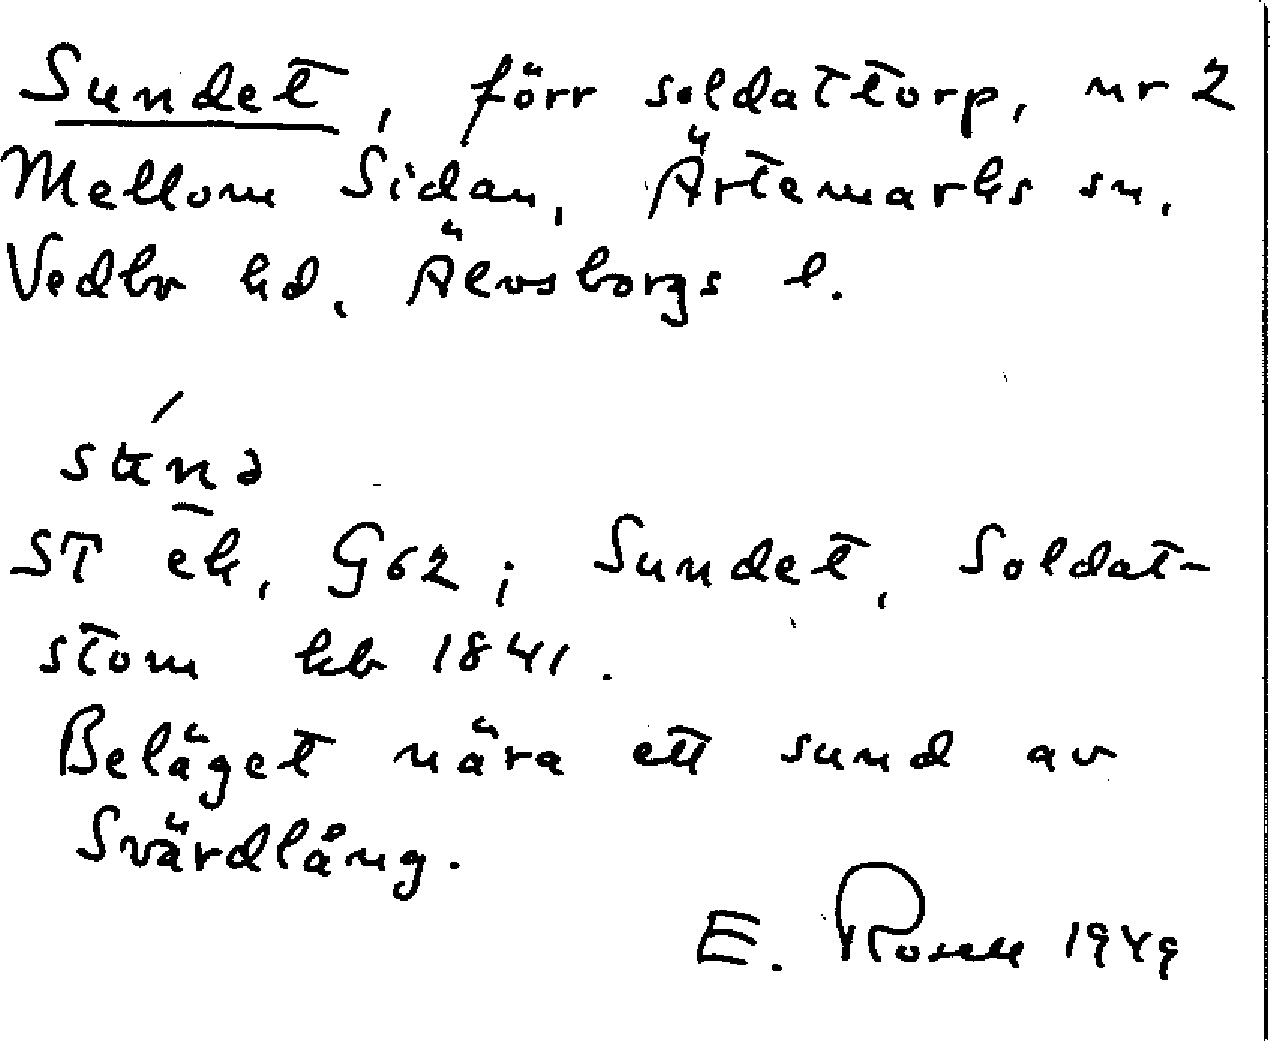 Sundet, förr soldattorp, nr 2
Mellom Sidan, Ärtemarks sn,
Vedbo hd, Älvsborgs l.
ST ek, G62; Sundet, Soldat-
stom kb 1841.
Beläget nära ett sund av
Svärdlång.
E. Rosell 1949